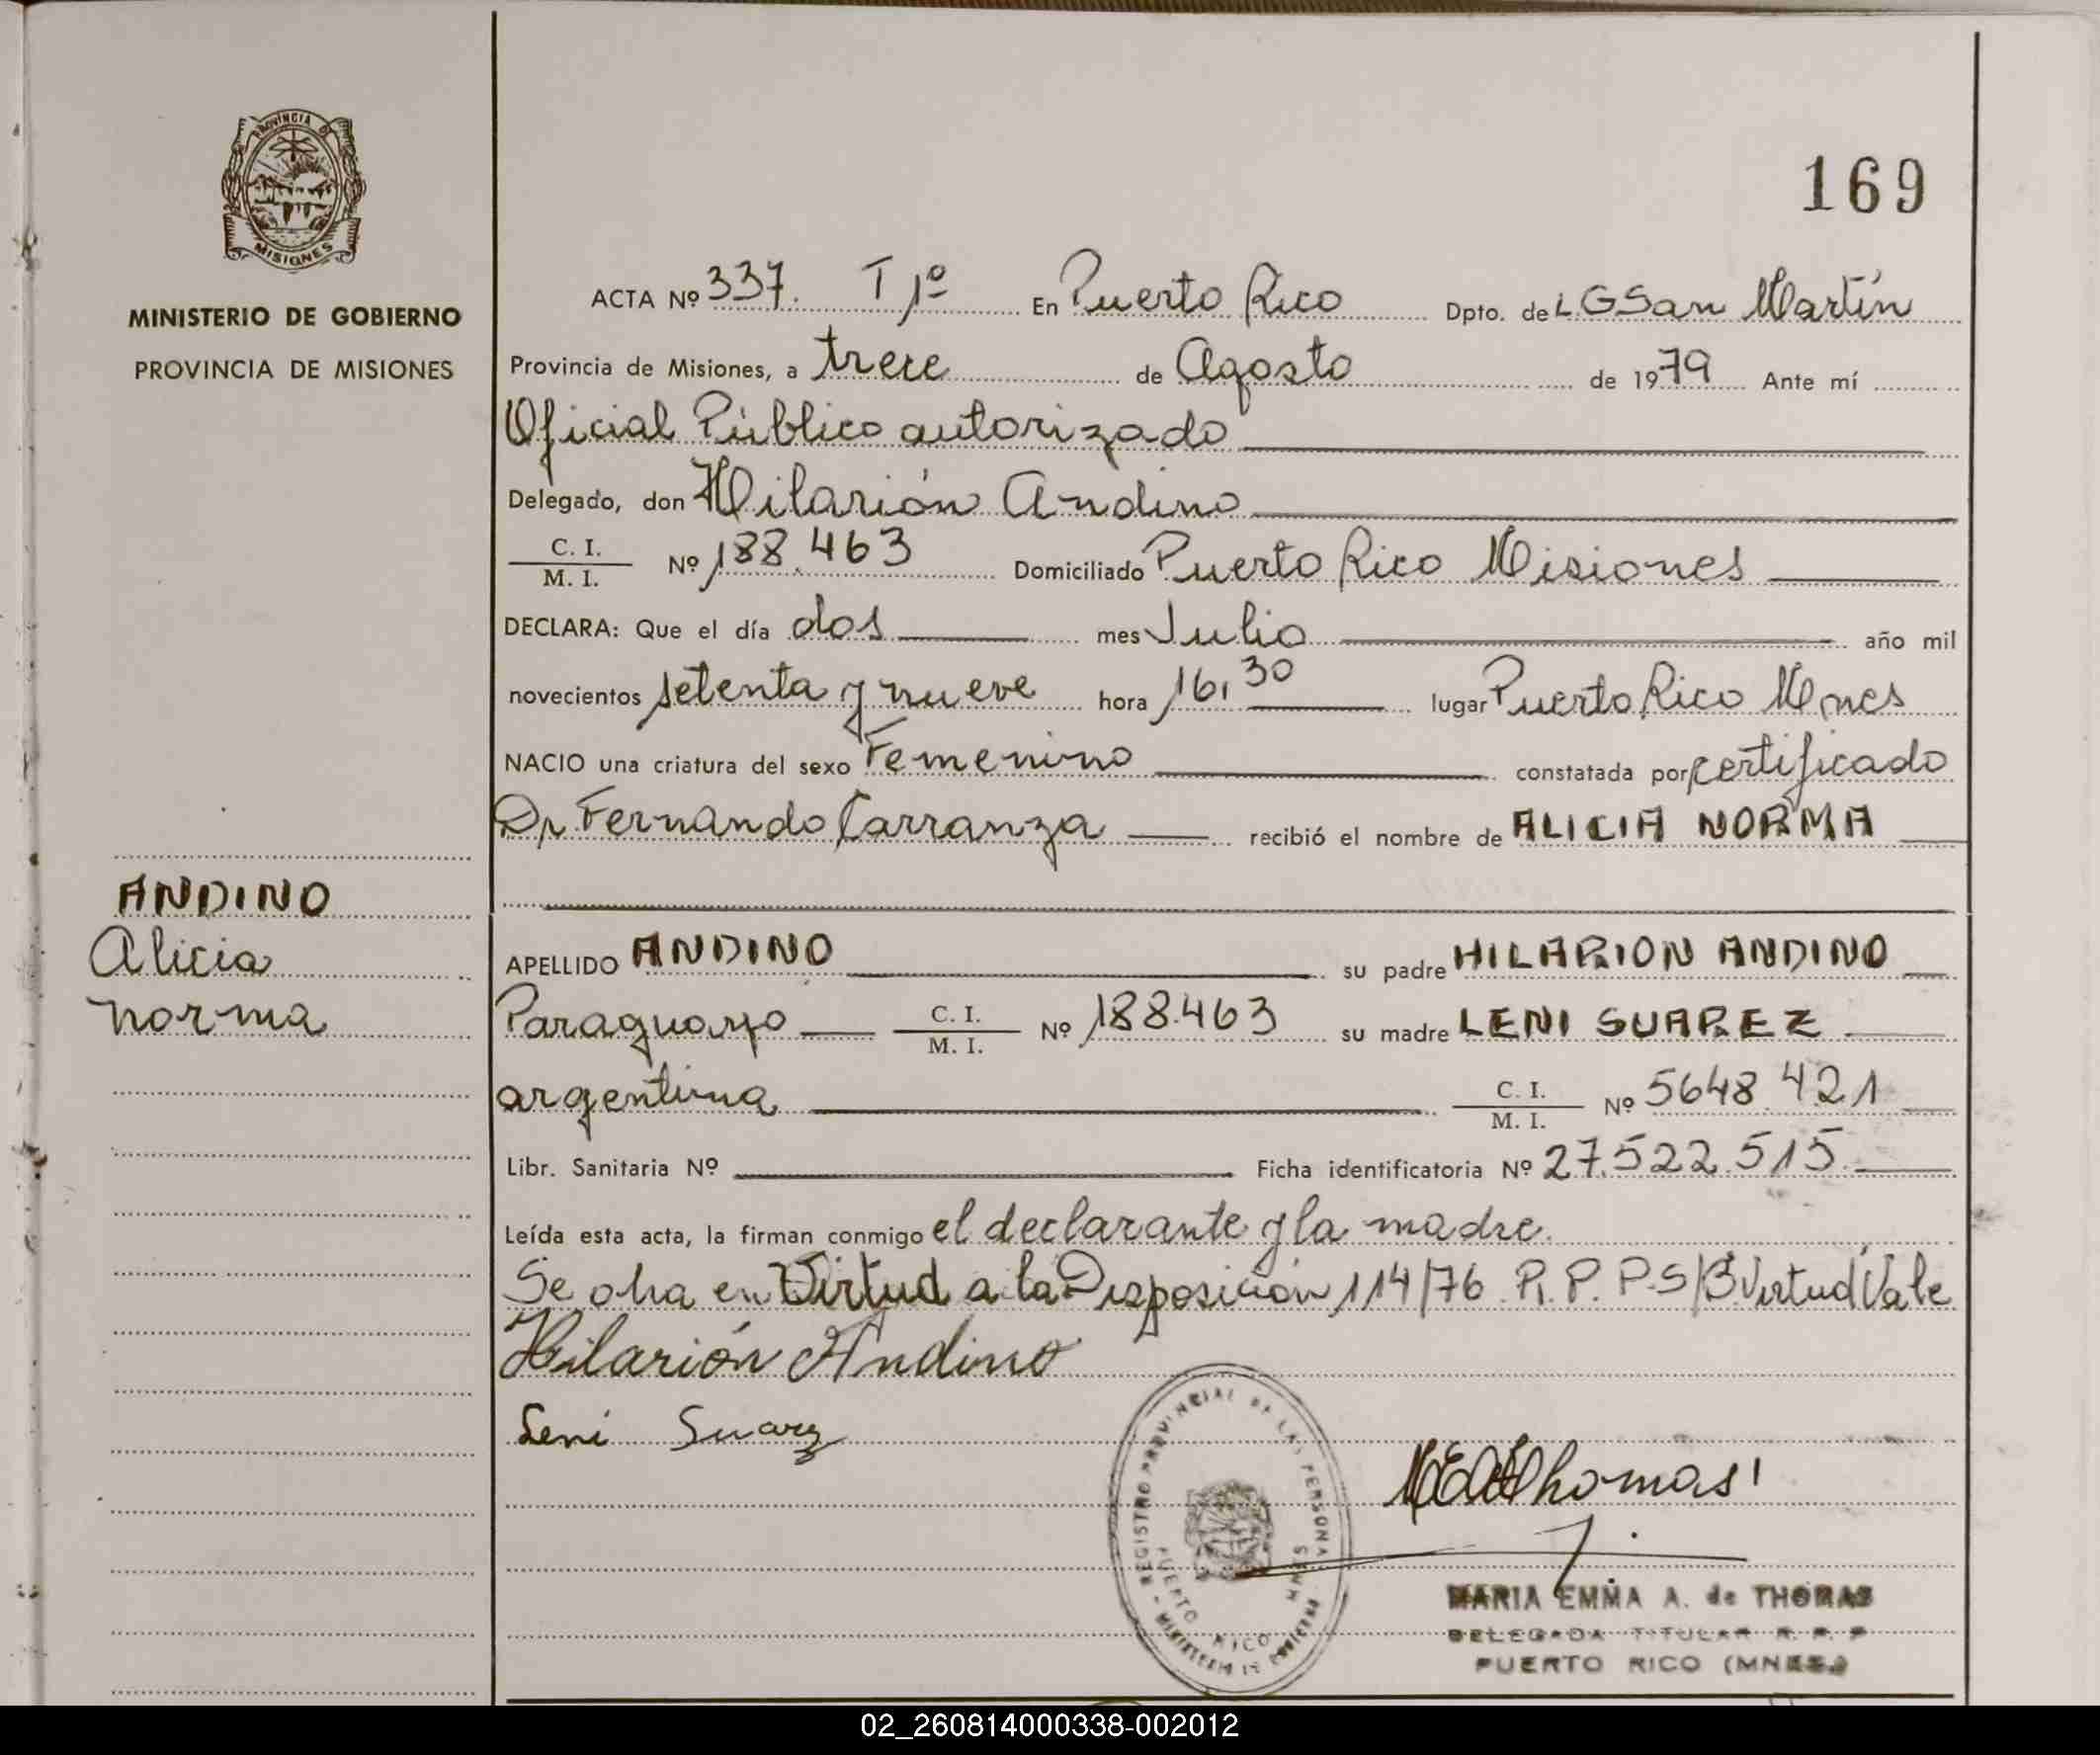 PROVINCIA DE
MISIONES
MINISTERIO DE GOBIERNO
PROVINCIA DE MISIONES
ANDINO
Alicia
norma
169
ACTA Nº 337. T 1º En Puerto Rico Dpto. de L G San Martín
Provincia de Misiones, a trece de Agosto de 1979 Ante mí
Oficial Público autorizado
Delegado, don Hilarión Andino
C. I. / M. I. Nº 188.463 Domiciliado Puerto Rico Misiones
DECLARA: Que el día dos mes Julio año mil
novecientos setenta y nueve hora 16,30 lugar Puerto Rico Mnes
NACIO una criatura del sexo Femenino constatada por certificado
Dr. Fernando Carranza recibió el nombre de ALICIA NORMA
APELLIDO ANDINO su padre HILARION ANDINO
Paraguayo C. I. / M. I. Nº 188.463 su madre LENI SUAREZ
argentina C. I. / M. I. Nº 5648.421
Libr. Sanitaria Nº Ficha identificatoria Nº 27.522.515
Leída esta acta, la firman conmigo el declarante y la madre.
Se en Virtud a la Disposición 114/76 R. P. P. S/B Virtud Vale
Hilarión Andino
Leni Suarez
REGISTRO PROVINCIAL DE LAS PERSONAS - MINISTERIO DE GOBIERNO
PUERTO RICO MNES
Thomas
MARIA EMMA A. de THOMAS
DELEGADA TITULAR R. P. P
PUERTO RICO (MNES.)
02_260814000338-002012